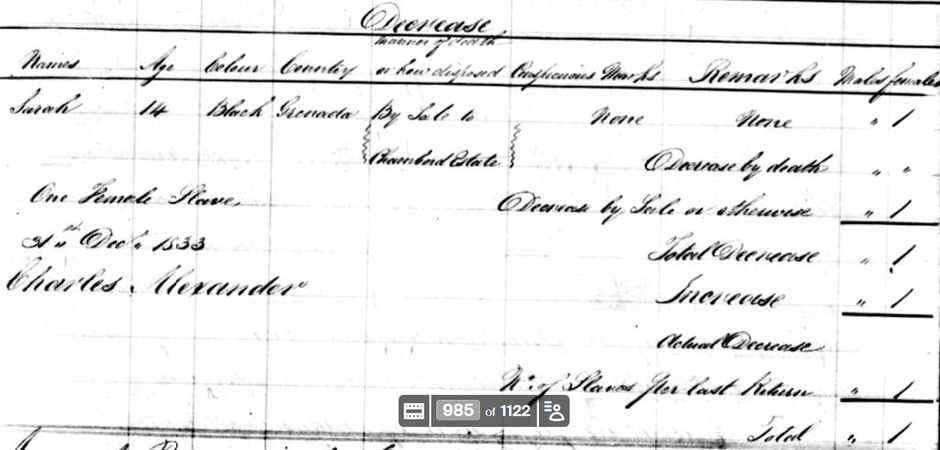 Decrease
manner of death
Names Age Colour Country or how disposed Conspicuous Marks Remarks Males females
Sarah 14 Black Grenada By Sale to None None " 1
Chambord Estate Decrease by death " "
One Female Slave, Decrease by Sale or otherwise " 1
31st Decr 1833 Total Decrease " 1
Charles Alexander Increase " 1
Actual Decrease
No. of Slaves per last Return " 1
985 of 1122
Total " 1